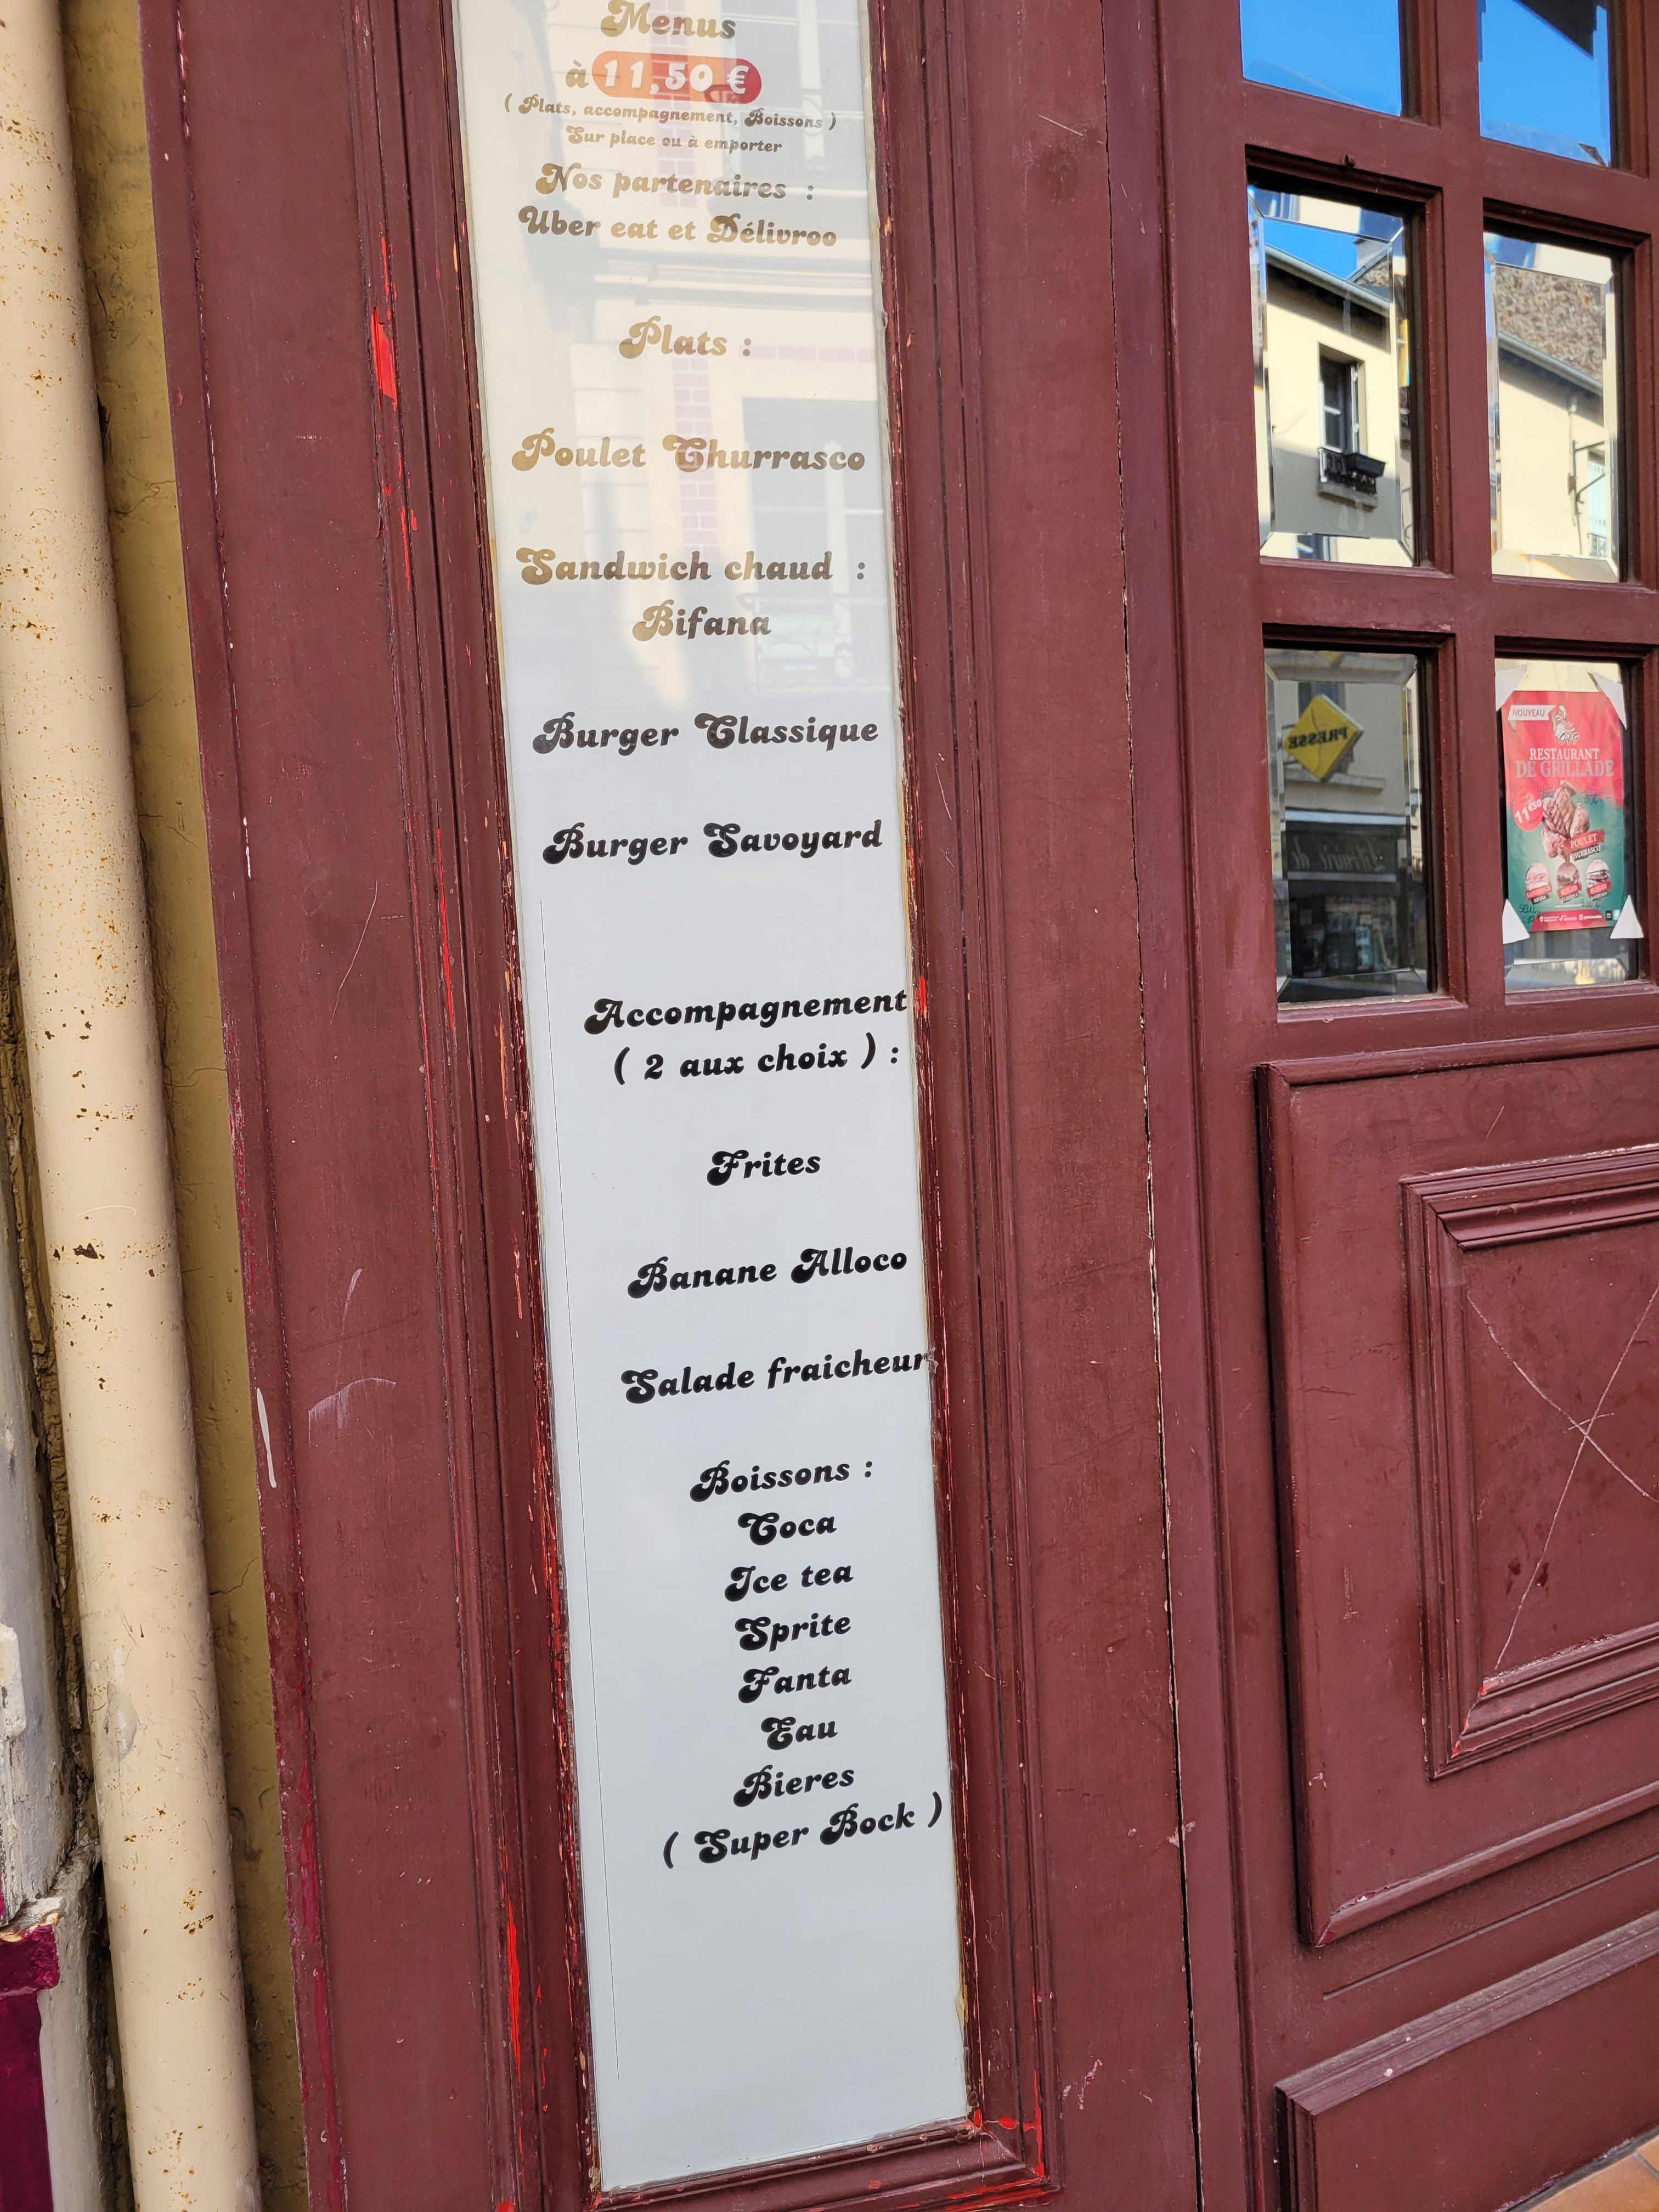 Menus
à 11,50 €
( Plats, accompagnement, Boissons )
Sur place ou à emporter
Nos partenaires :
Uber eat et Délivroo
Plats :
Poulet Churrasco
Sandwich chaud :
Bifana
Burger Classique
Burger Savoyard
Accompagnement
( 2 aux choix ) :
Frites
Banane Alloco
Salade fraicheur
Boissons :
Coca
Ice tea
Sprite
Fanta
Eau
Bieres
( Super Bock )
PRESSE
NOUVEAU
RESTAURANT
DE GRILLADE
11€50
POULET
CHURRASCO